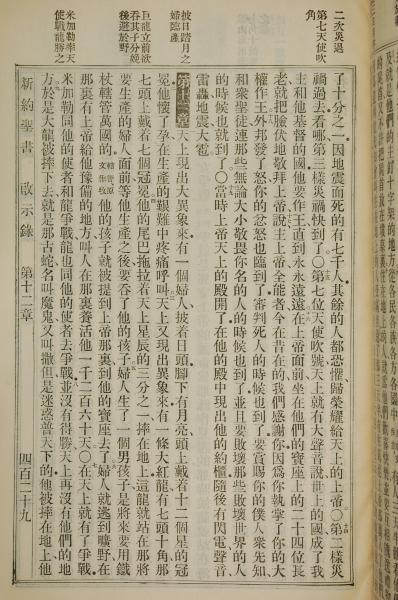 二次災退
第七天使吹
角
披日踏月之
婦臨產
巨龍立前欲
吞其子分娩
後避於野
米加勒率天
使戰龍勝之
了十分之一因地震而死的有七千人其餘的人都恐懼歸榮耀給天上的上帝〇第二樣災
禍過去看哪第三樣災禍快到了〇第七位天使吹號天上就有大聲音說世上的國成了我
主和他基督的國他要作王直到永永遠遠在上帝面前坐在他們的寶座上的二十四位長
老就把臉伏地敬拜上帝說主上帝全能者今在昔在的我們感謝你因爲你執掌了你的大
權作王外邦發了怒你的忿怒也臨到了審判死人的時候也到了要賞賜你的僕人衆先知
和衆聖徒連那些無論大小敬畏你名的人的時候也到了並且要敗壞那些敗壞世界的人
的時候也就到了〇當時上帝天上的殿開了在他的殿中現出他的約櫃隨後有閃電聲音
雷轟地震大雹
第十二章 天上現出大異象來有一個婦人披着日頭腳下有月亮頭上戴着十二個星的冠
冕他懷了孕在生產的艱難中疼痛呼叫天上又現出異象來有一條大紅龍有七頭十角那
七頭上戴着七個冠冕他的尾巴拖拉着天上星辰的三分之一摔在地上這龍就站在那將
要生產的婦人面前等他生產之後要吞了他的孩子婦人生了一個男孩子是將來要用鐵
杖轄管萬國的他的孩子就被提到上帝那裏到他的寶座去了婦人就逃到曠野在
那裏有上帝給他豫備的地方叫人在那裏養活他一千二百六十天〇在天上就有了爭戰
米加勒同他的使者和龍爭戰龍也同他的使者去爭戰並沒有得勝天上再沒有他們的地
方於是大龍被摔下去就是那古蛇名叫魔鬼又叫撒但是迷惑普天下的他被摔在地上他
新約聖書 啟示錄 第十二章 四百二十九